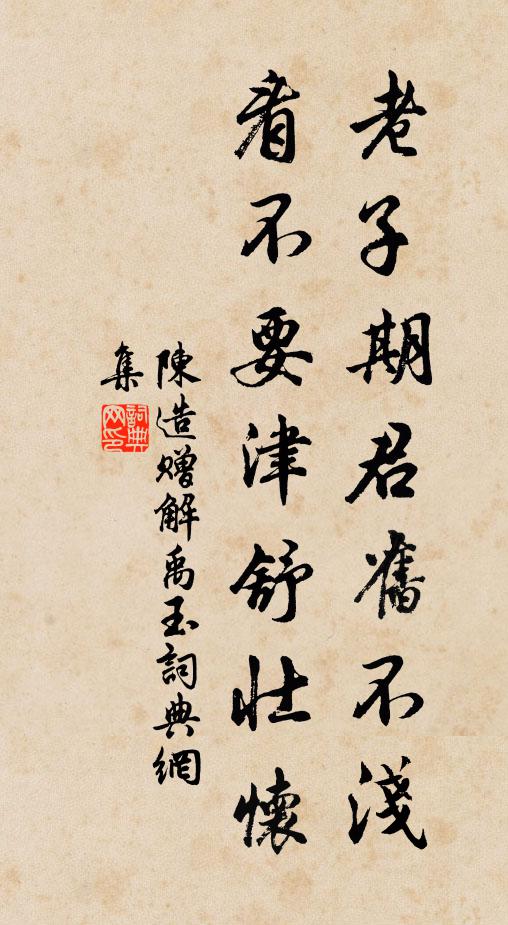 老子期君舊不淺
看不要津舒壯懷
陳造贈解禹玉詞典網
集
詞典
网印